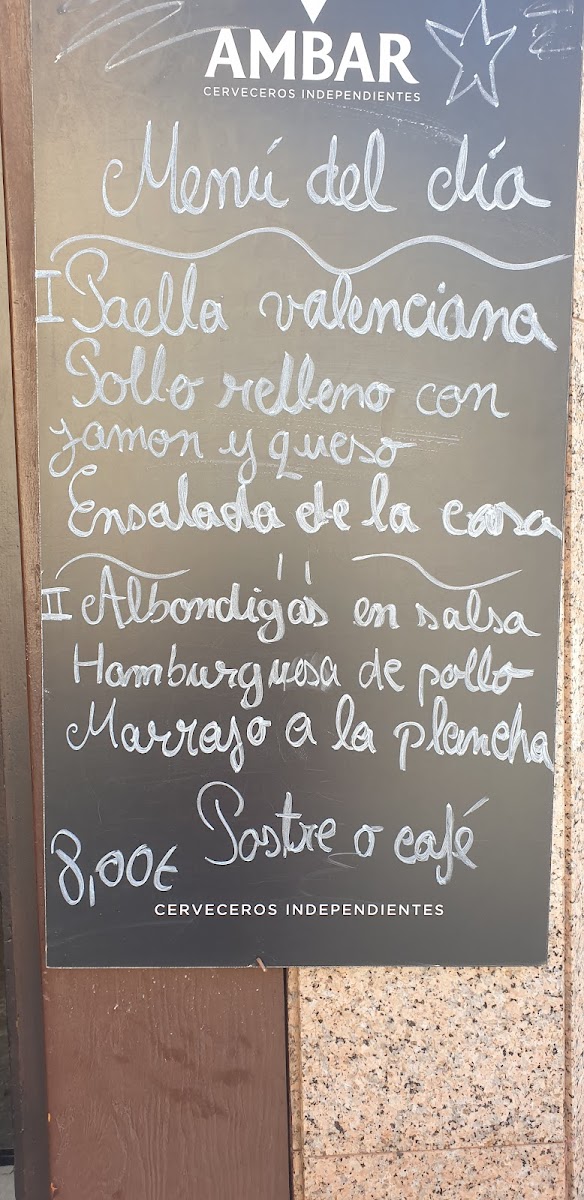 AMBAR
CERVECEROS INDEPENDIENTES
Menú del día
I Paella valenciana
Pollo relleno con
jamon y queso
Ensalada de la casa
II Albondigas en salsa
Hamburguesa de pollo
Marrajo a la plancha
Postre o café
8,00€
CERVECEROS INDEPENDIENTES